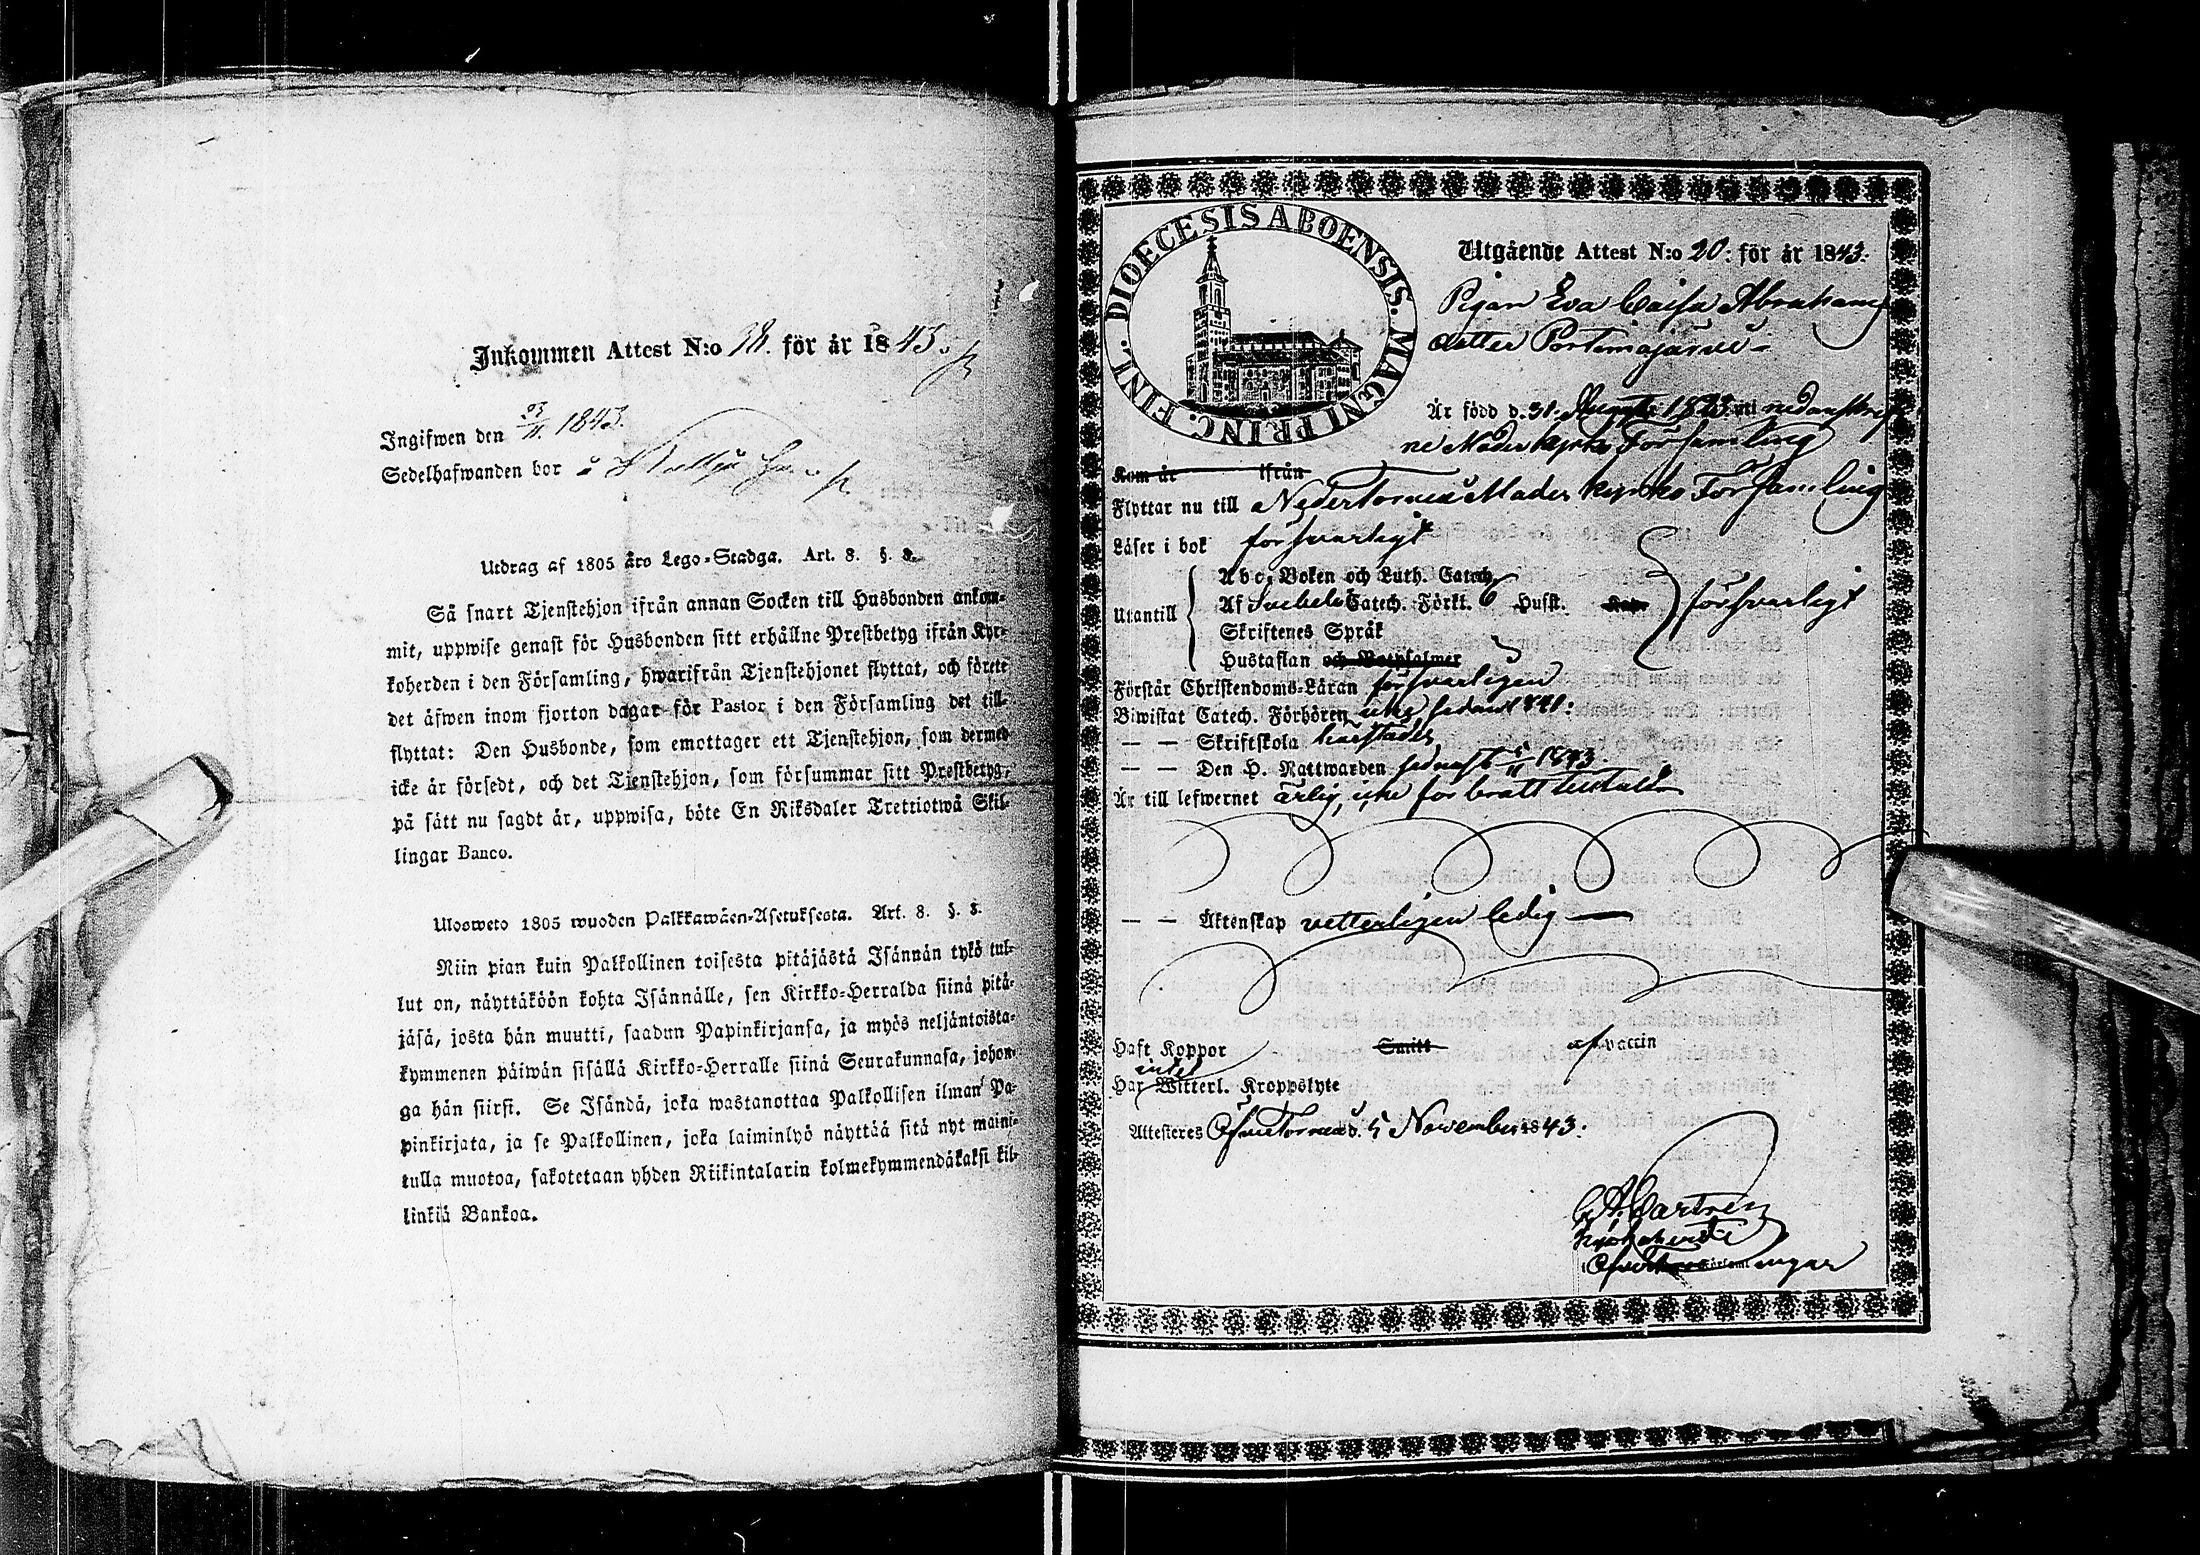 Inkommen Attest N:o 38. för år 1843.
Ingifwen den 23/11. 1843.
Sedelhafwanden bor å
Utdrag af 1805 års Lego-Stadga. Art. 8. §. 8.
Så snart Tjenstehjon ifrån annan Socken till Husbonden ankom-
mit, uppwise genast för Husbonden sitt erhållne Prestbetyg ifrån Kyr-
koherden i den Församling, hwarifrån Tjenstehjonet flyttat, och förete
det äfwen inom fjorton dagar för Pastor i den Församling det till-
flyttat: Den Husbonde, som emottager ett Tjenstehjon, som dermed
icke är försedt, och det Tjenstehjon, som försummar sitt Prestbetyg,
på sätt nu sagdt är, uppwisa, böte En Riksdaler Trettiotwå Skil-
lingar Banco.
Ulosweto 1805 wuoden Palkkawäen-Asetuksesta. Art. 8. §. 8.
Niin pian kuin Palkollinen toisesta pitäjästä Isännän tykö tul-
lut on, näyttäköön kohta Isännälle, sen Kirkko-Herralda siinä pitä-
jäsä, josta hän muutti, saadun Papinkirjansa, ja myös neljäntoista-
kymmenen päiwän sisällä Kirkko-Herralle siinä Seurakunnasa, johon-
ga hän siirsi. Se Isändä, joka wastanottaa Palkollisen ilman Pa-
pinkirjata, ja se Palkollinen, joka laiminlyö näyttää sitä nyt maini-
tulla muotoa, sakotetaan yhden Riikintalarin kolmekymmendäkaksi kil-
linkiä Bankoa.
DIOECESIS ABOENSIS. MAGNI PRINC. FINL.
Utgående Attest N:o 20. för år 1843.
Pigan Eva Caisa Abrahams
dotter Portimojärvi
Är född d. 31. Augusti 1823 uti nedanskref
ne Moderkyrko Församling
Kom år ifrån
Flyttar nu till Nedertorneå Moder kyrko Församling
Läser i bok försvarligt
Abc, Boken och Luth. Catech.
Utantill Af Svebelii Catech. Förkl. Husit. försvarligt
Skriftenes Språk
Hustaflan och Botpsalmer
Förstår Christendoms-Läran försvarligen
Biwistat Catech. Förhören sedan 1841.
— — Skriftskola härstädes
— — Den H. Nattwarden sednast 5/11 1843.
Är till lefwernet ärlig, icke för brott tilltald
— — Äktenskap vetterligen ledig —
Haft Koppor Smitt af vaccin
intet
Har Witterl. Kroppslyte
Attesteras Öfvertorneå d. 5 November 1843.
Kyrkoherde